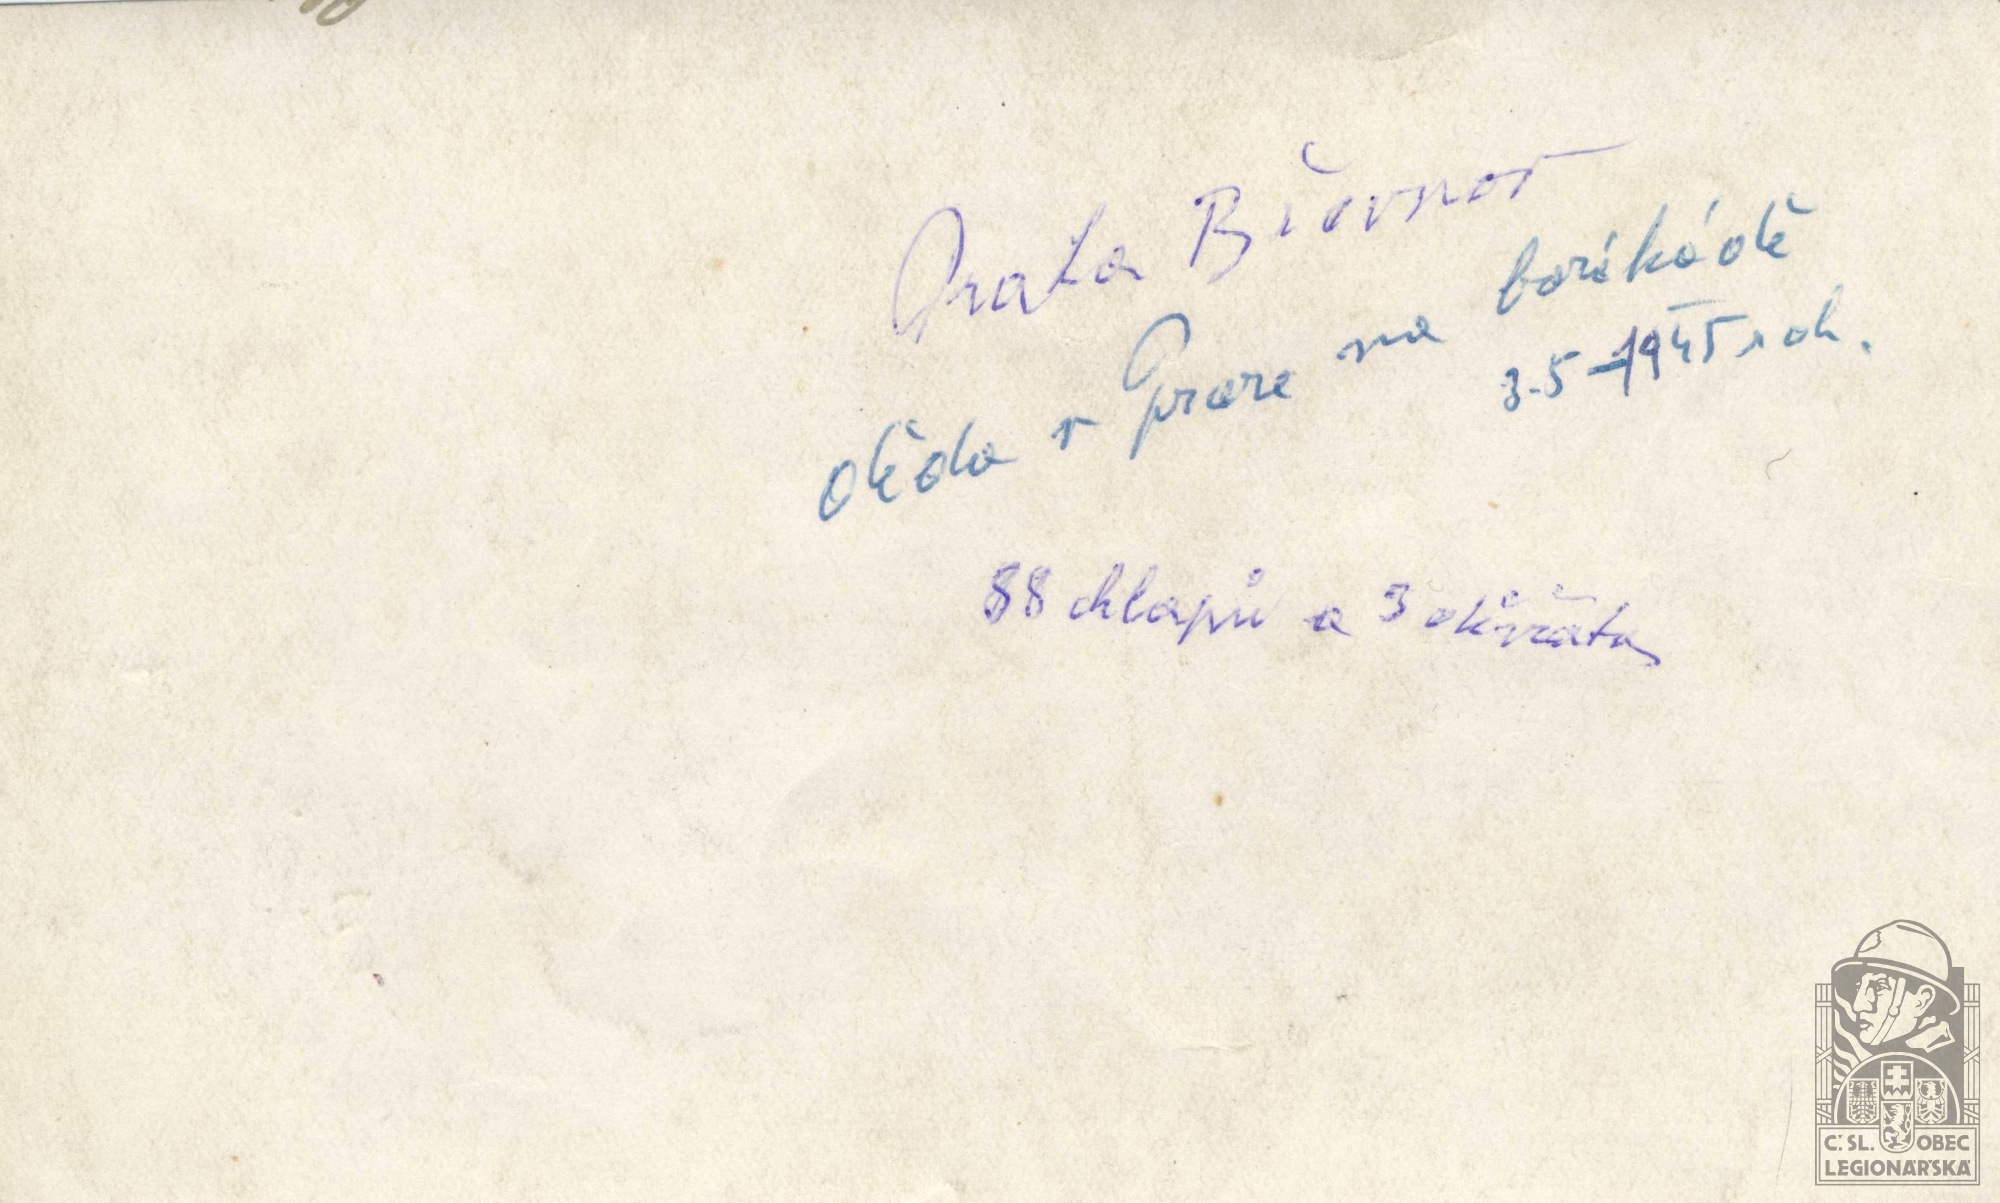 Praha Břevnov
děda v Praze na barikádě
3.5-1945 rok.
88 chlapů a 3 děvčata
Č.SL. OBEC
LEGIONÁŘSKÁ